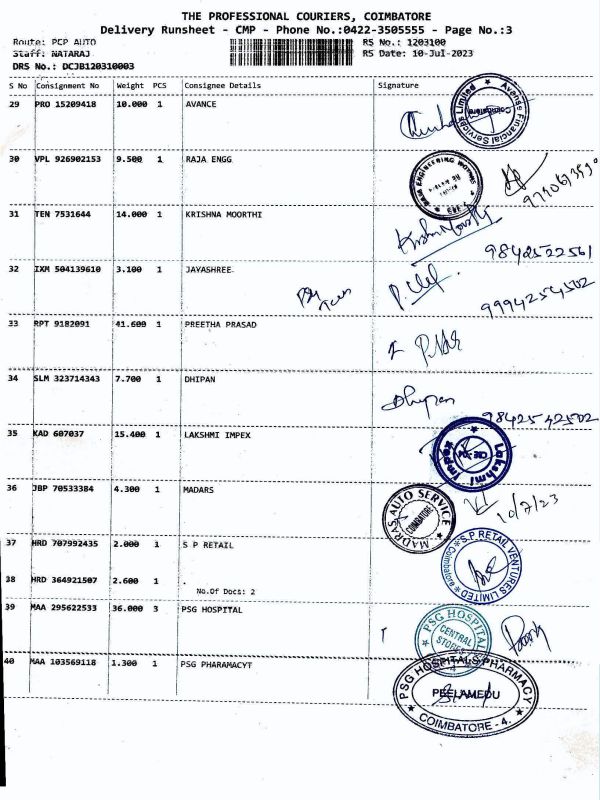 THE PROFESSIONAL COURIERS, COIMBATORE
Delivery Runsheet - CMP - Phone No.:0422-3505555 - Page No.:3
Route: PCP AUTO RS No.: 1203100
Staff: NATARAJ RS Date: 10-Jul-2023
DRS No.: DCJB120310003
S No Consignment No Weight PCS Consignee Details Signature
29 PRO 15209418 10.000 1 AVANCE
Avense Financial Services Limited Coimbatore
30 VPL 926902153 9.500 1 RAJA ENGG
31 TEN 7531644 14.000 1 KRISHNA MOORTHI
9842522561
32 IXM 504139610 3.100 1 JAYASHREE
9994254502
33 RPT 9182091 41.600 1 PREETHA PRASAD
34 SLM 323714343 7.700 1 DHIPAN
Dhipan
9842542502
35 KAD 607037 15.400 1 LAKSHMI IMPEX
Lakshmi Impex
36 JBP 70533384 4.300 1 MADARS
MADRAS AUTO SERVICE COIMBATORE
10/7/23
37 HRD 707992435 2.000 1 S P RETAIL
S.P RETAIL VENTURES LIMITED Coimbatore
38 HRD 364921507 2.600 1 .
No.Of Docs: 2
39 MAA 295622533 36.000 3 PSG HOSPITAL
PSG HOSPITAL CENTRAL STORES
40 MAA 103569118 1.300 1 PSG PHARAMACYT
PSG HOSPITALS PHARMACY
PEELAMEDU
COIMBATORE - 4.